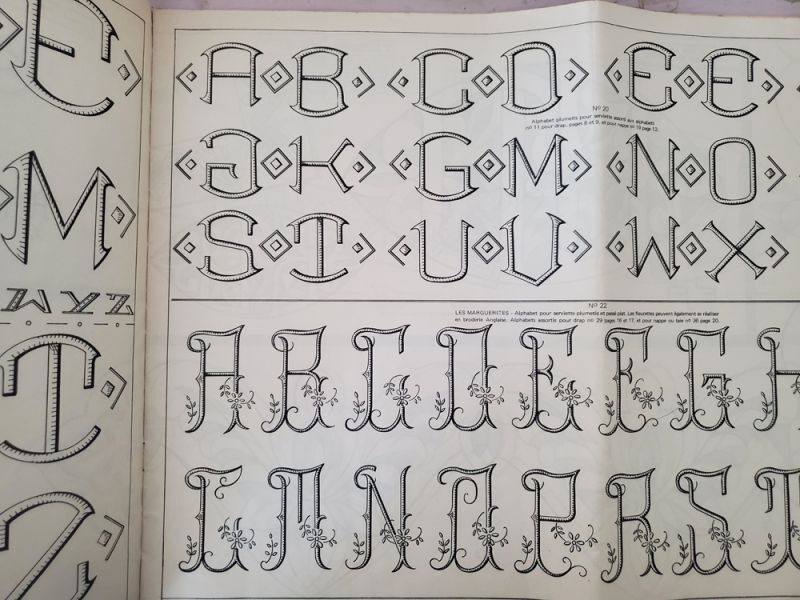 E
M
W Y Z
T
Z
A B C D E E
Nº 20
Alphabet plumetis pour serviette assorti aux alphabets
nº 11 pour drap, pages 8 et 9, et pour nappe nº 19 page 13.
J K G M N O
S T U V W X
Nº 22
LES MARGUERITES - Alphabet pour serviette plumetis et passé plat. Les fleurettes peuvent également se réaliser
en broderie Anglaise. Alphabets assortis pour drap nº 29 pages 16 et 17, et pour nappe ou taie nº 36 page 20.
A B C D E F G H
L M N O P R S T